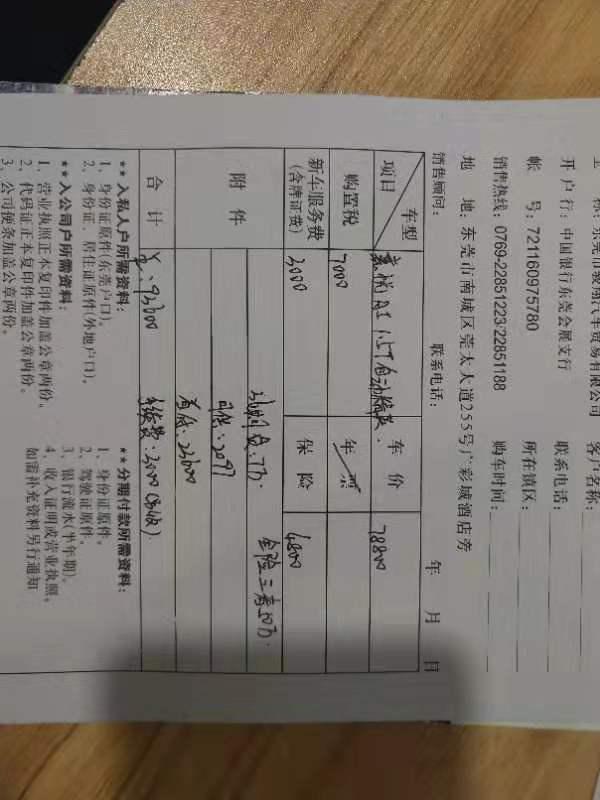 称：东莞市骏翔汽车贸易有限公司 客户名称：
开 户 行：中国银行东莞会展支行 联系电话：
帐 号：721160975780 所在镇区：
销售热线：0769-22851223/22851188 购车时间：
地 址：东莞市南城区莞太大道255号广彩城酒店旁
销售顾问： 联系电话： 年 月 日
项目 车型 嘉悦A5 1.5T自动 车 价 78800
购置税 7000 年 票
新车服务费(含牌证费) 3000 保 险 4800
全险三者50万.
附 件
36期 贷：7万
月供：2097
首付：23600
合 计 全：93600 手续费：3000
**入私人户所需资料：
1、身份证原件(东莞户口)。
2、身份证、居住证原件(外地户口)。
**入公司户所需资料：
1、营业执照正本复印件加盖公章两份。
2、代码证正本复印件加盖公章两份。
3、公司便条加盖公章两份。
**分期付款所需资料：
1、身份证原件。
2、驾驶证原件。
3、银行流水(半年期)。
4、收入证明或营业执照。
如需补充资料另行通知